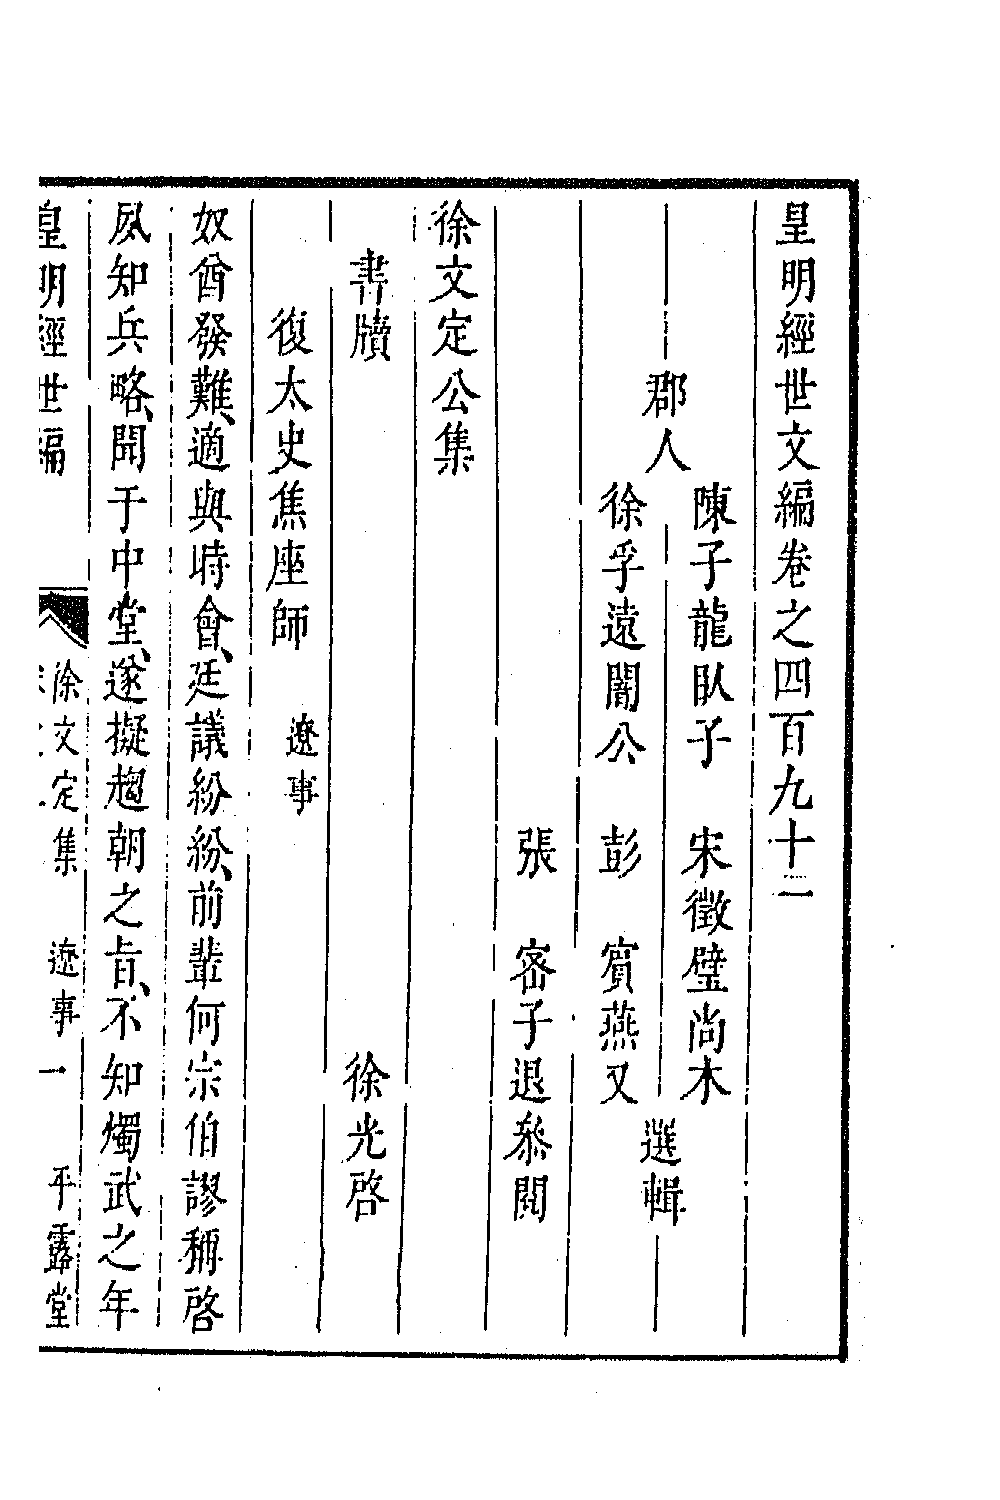 皇明經世文編卷之四百九十二
郡人
陳子龍臥子　宋徵璧尚木
徐孚遠闇公　彭　賓燕又
選輯
張　密子退叅閱
徐文定公集
書牘　徐光啓
復太史焦座師　遼事
奴酋發難、適與時會、廷議紛紛、前輩何宗伯謬稱啓
夙知兵略、聞于中堂、遂擬趨朝之旨、不知燭武之年
皇明經世編
徐文定集　遼事　一　平露堂